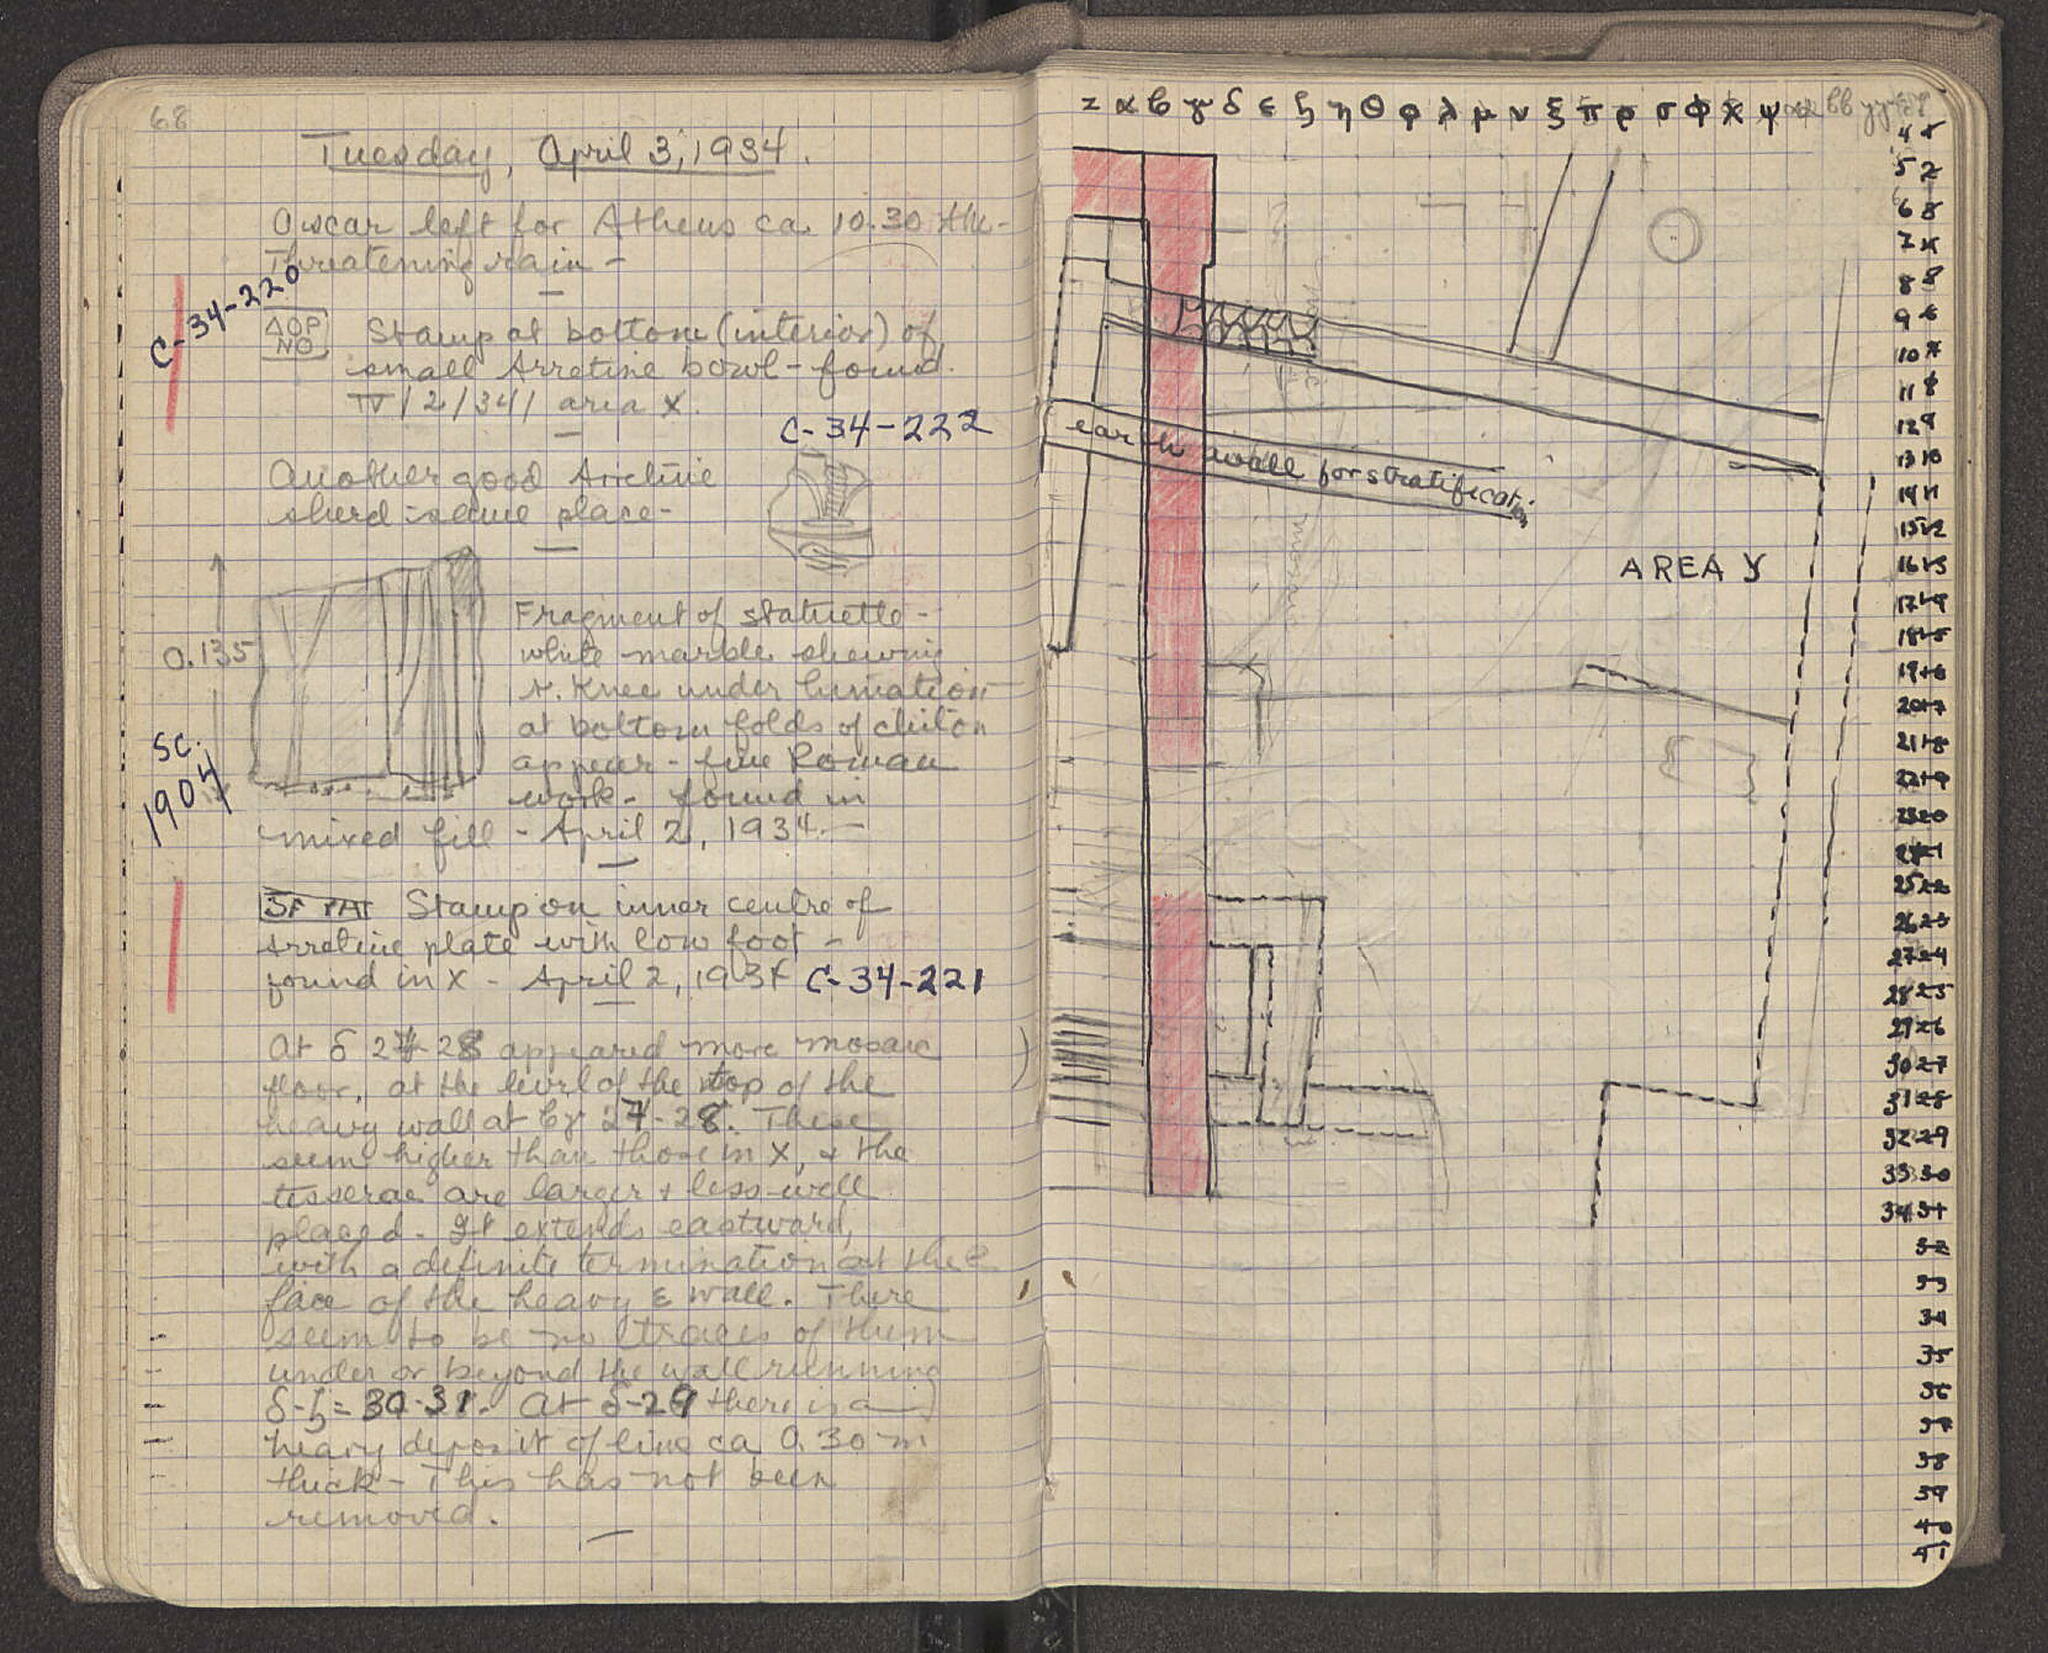 68
Tuesday, April 3, 1934.
Oscar left for Athens ca. 10.30
Threatening rain -
C-34-220
ΔΟΡ
ΝΟ
Stamp at bottom (interior) of
small Arretine bowl - found
IV/2/34/ area X.
C-34-222
Another good Arretine
sherd - same place -
0.135
Fragment of statuette -
white marble shewing
r. knee under himation
at bottom folds of chiton
appear - fine Roman
work - found in
mixed fill - April 2, 1934. -
SC.
1904
Stamp on inner centre of
Arretine plate with low foot -
found in X - April 2, 1934 C-34-221
At δ 27-28 appeared more mosaic
floor, at the level of the top of the
heavy wall at βγ 27-28. These
seem higher than those in X, & the
tesserae are larger & less well
placed - It extends eastward,
with a definite termination at the
face of the heavy E wall. There
seem to be no traces of them
under or beyond the wall running
δ-ζ = 30-31. At δ-29 there is a
heavy deposit of lime ca 0.30 m
thick - This has not been
removed.
z α β γ δ ε ζ η θ φ λ μ ν ξ π ρ σ φ χ ψ αα ββ γγ
earth wall for stratification
AREA Y
4
5 2
6
7
8
9 6
10 7
11 8
12 9
13 10
14 11
15 12
16 13
17 14
18 15
19 16
20 17
21 18
22 19
23 20
24 21
25 22
26 23
27 24
28 25
29 26
30 27
31 28
32 29
33 30
34 31
32
33
34
35
36
37
38
39
40
41